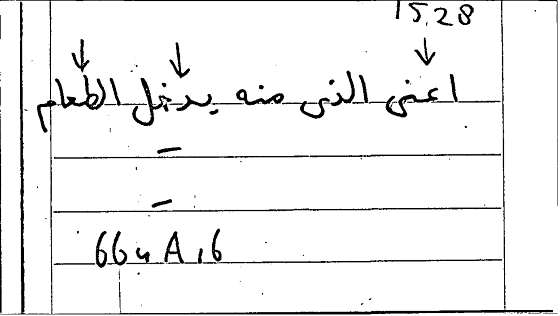 15.28
اعنى الذى منه يدخل الطعام
66u A,6